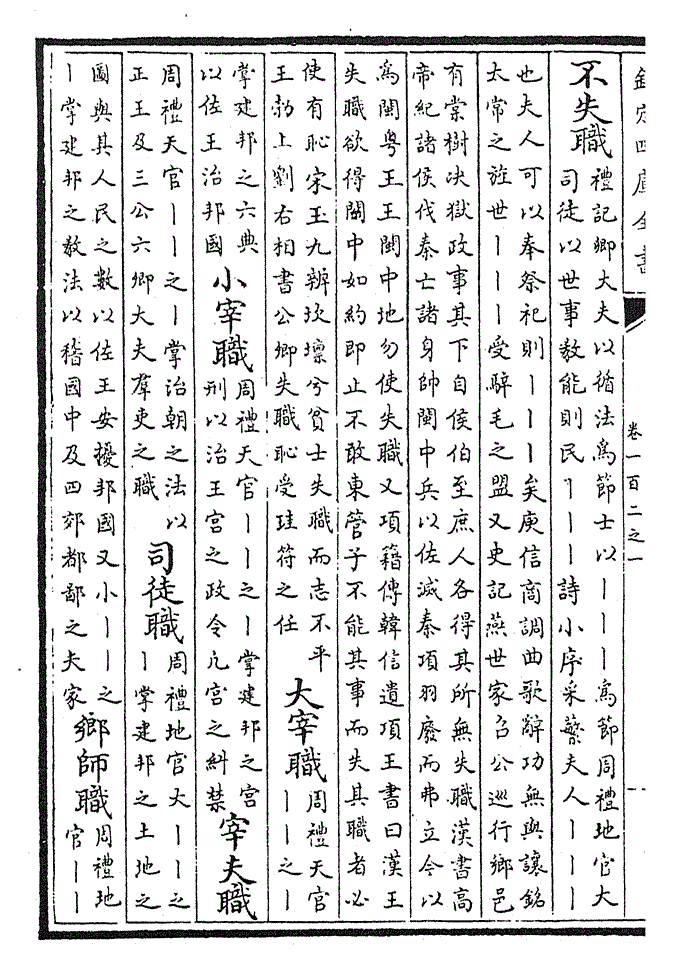 欽定四庫全書
卷一百二之一
不失職
禮記卿大夫以循法為節士以丨丨丨為節周禮地官大
司徒以世事教能則民丨丨丨詩小序采蘩夫人丨丨丨
也夫人可以奉祭祀則丨丨丨矣庾信商調曲歌辭功無與讓銘
太常之旌世丨丨丨受騂毛之盟又史記燕世家召公巡行鄉邑
有棠樹決獄政事其下自侯伯至庶人各得其所無失職漢書高
帝紀諸侯伐秦亡諸身帥閩中兵以佐滅秦項羽廢而弗立今以
為閩粵王王閩中地勿使失職又項籍傳韓信遺項王書曰漢王
失職欲得關中如約即止不敢東管子不能其事而失其職者必
使有恥宋玉九辨坎壈兮貧士失職而志不平
王勃上劉右相書公卿失職恥受珪符之任
大宰職
周禮天官
丨丨之丨
掌建邦之六典
以佐王治邦國
小宰職
周禮天官丨丨之丨掌建邦之宮
刑以治王宮之政令凡宮之糾禁
宰夫職
周禮天官丨丨之丨掌治朝之法以
正王及三公六卿大夫羣吏之職
司徒職
周禮地官大丨丨之
丨掌建邦之土地之
圖與其人民之數以佐王安擾邦國又小丨丨之
丨掌建邦之教法以稽國中及四郊都鄙之夫家
鄉師職
周禮地
官丨丨